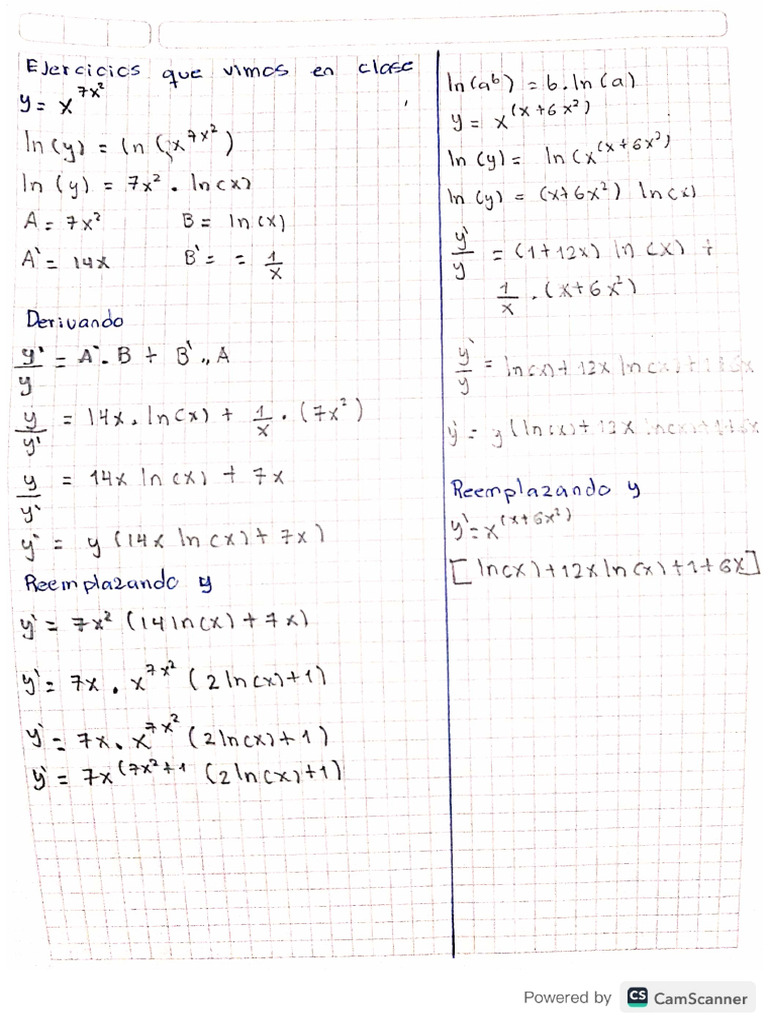 Ejercicios que vimos en clase
y = x^7x²
ln(y) = ln(x^7x²)
ln(y) = 7x² . ln(x)
A = 7x² B = ln(x)
A' = 14x B' = = 1/x
Derivando
y'/y = A'. B + B'.. A
y/y' = 14x . ln(x) + 1/x . (7x²)
y/y' = 14x ln(x) + 7x
y' = y (14x ln(x) + 7x)
Reemplazando y
y' = 7x² (14 ln(x) + 7x)
y' = 7x . x^7x² (2 ln(x) + 1)
y' = 7x . x^7x² (2 ln(x) + 1)
y' = 7x^(7x²+1 (2 ln(x) + 1)
ln(a^b) = b . ln(a)
y = x^(x + 6x²)
ln(y) = ln(x^(x+6x²)
ln(y) = (x+6x²) ln(x)
y'/y = (1+12x) ln(x) +
1/x . (x+6x²)
y'/y = ln(x) + 12x ln(x) + 1+6x
y' = y (ln(x) + 12x ln(x) + 1+6x
Reemplazando y
y' = x^(x+6x²)
[ln(x) + 12x ln(x) + 1 + 6x]
Powered by CS CamScanner